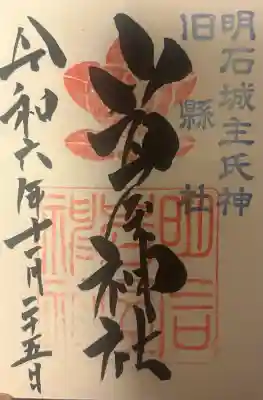 明石城主氏神
旧縣社
岩屋神社
令和六年十一月二十五日
明石
神社